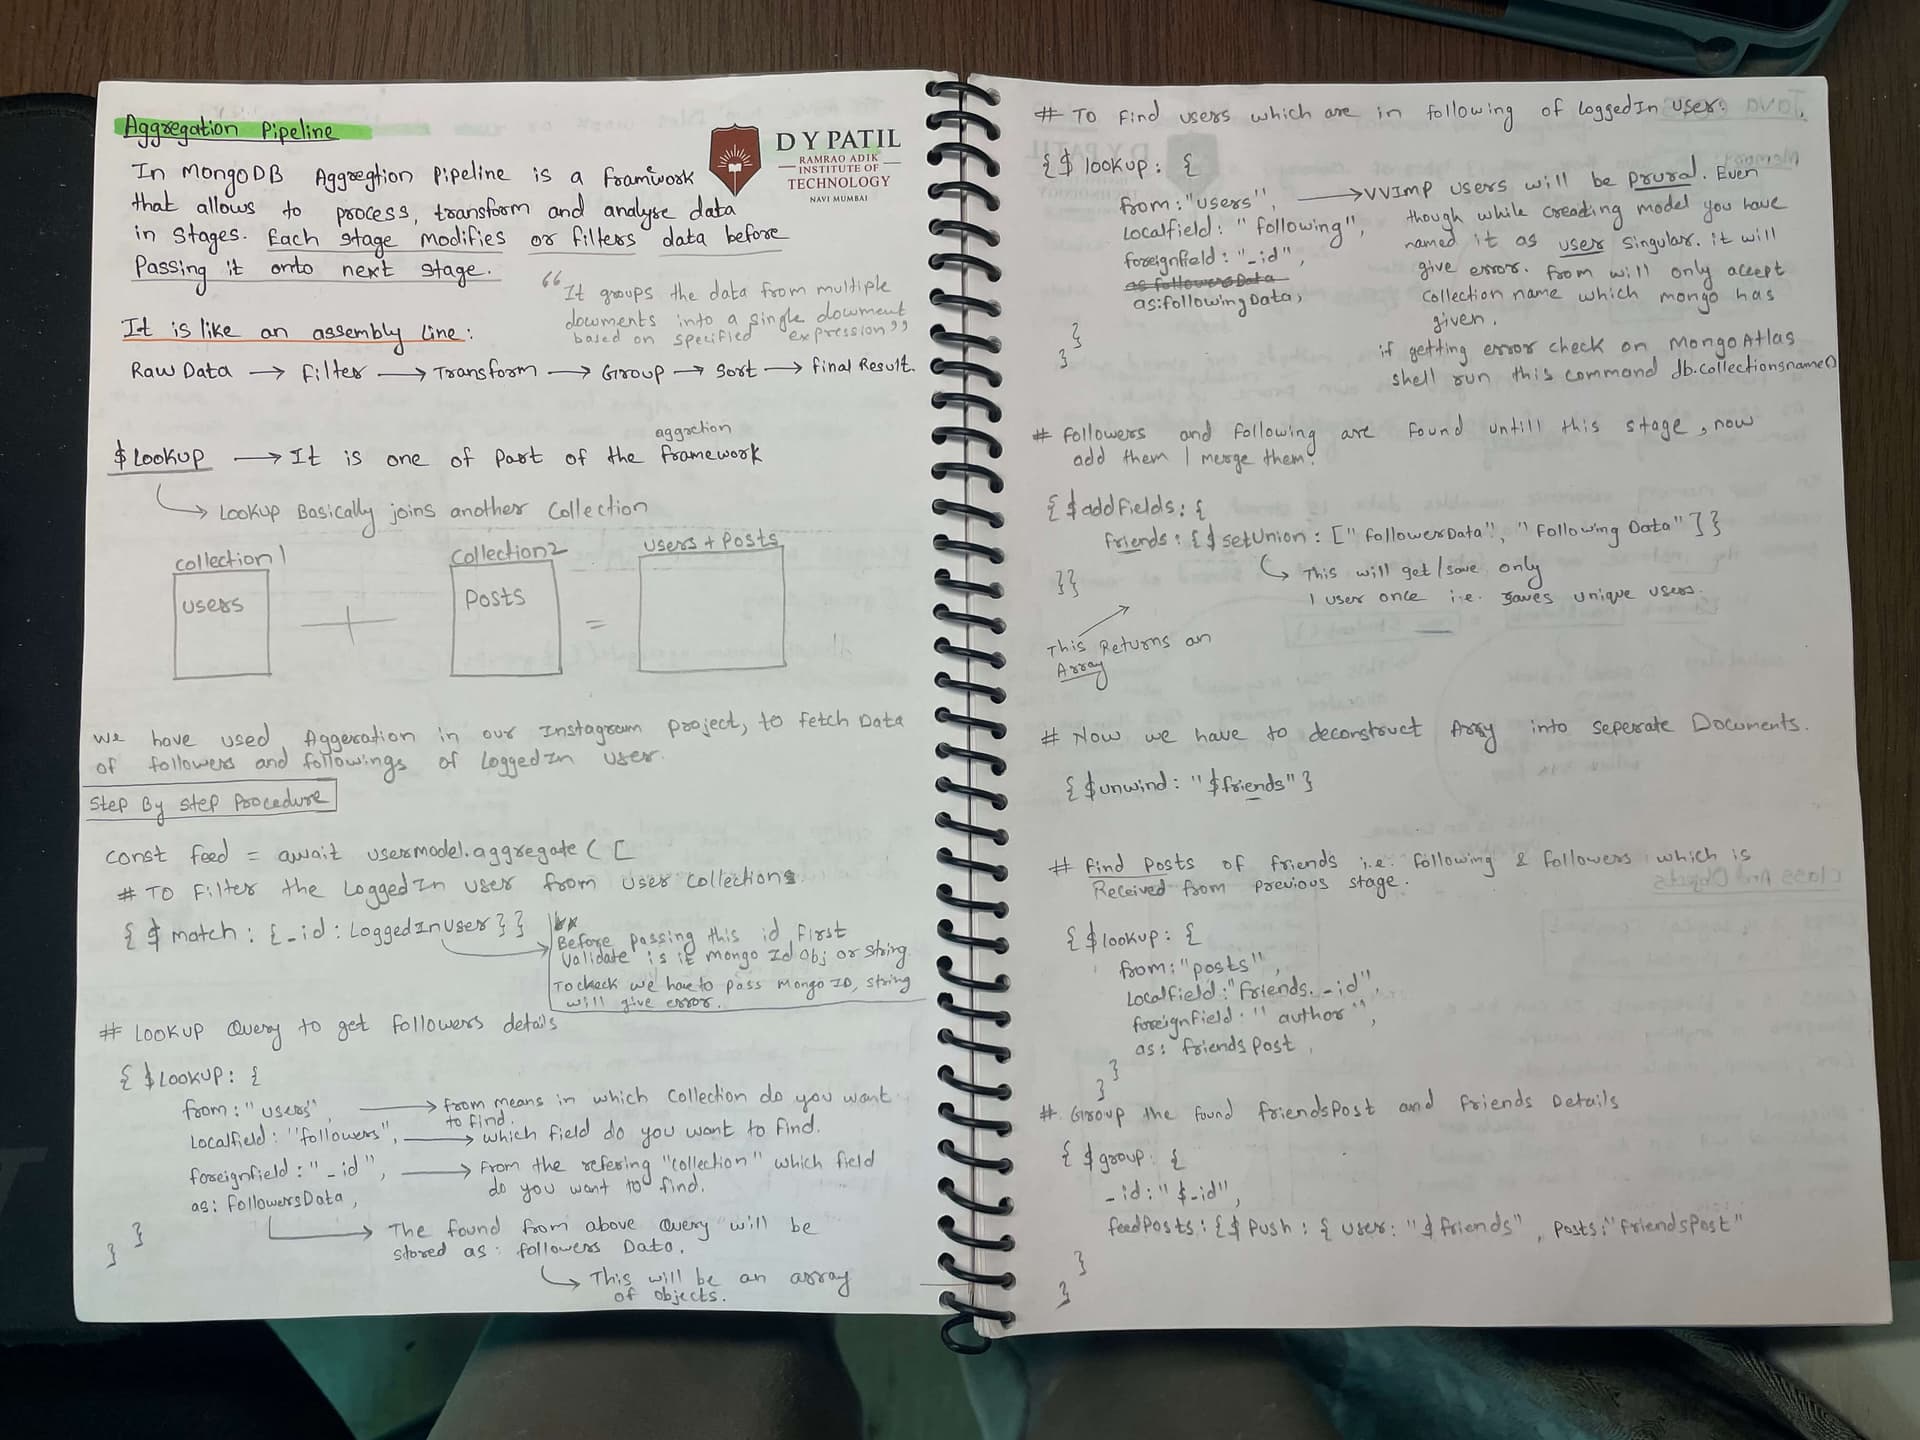 Aggregation Pipeline
D Y PATIL
RAMRAO ADIK
INSTITUTE OF
TECHNOLOGY
NAVI MUMBAI
In MongoDB Aggregtion Pipeline is a framework
that allows to process, transform and analyse data
in stages. Each stage modifies or filters data before
Passing it onto next stage.
"It groups the data from multiple
documents into a single document
based on specified expression"
It is like an assembly line:
Raw Data → Filter → Transform → Group → Sort → final Result.
aggrction
$ Lookup → It is one of Part of the framework
Lookup Basically joins another Collection
collection1
collection2
users + Posts
users
+
Posts
=
we have used Aggeration in our Instagram project, to fetch Data
of followers and followings of LoggedIn user.
Step By Step Procedure
const feed = await usermodel.aggregate ( [
# To Filter the LoggedIn user from user collections
{ $ match : { _id : LoggedInuser } }
**
Before passing this id First
Validate is it mongo Id Obj or string
To check we have to pass Mongo ID, string
will give error.
# Lookup Query to get followers details
{ $ Lookup : {
from : "users", → from means in which Collection do you want
to find.
Localfield : "followers", → which field do you want to find.
foreignfield : "_id", → From the refering "Collection" which field
do you want to find.
as : followersData,
→ The found from above Query will be
stored as : followers Data.
} }
→ This will be an array
of objects.
# To Find users which are in following of loggedIn user.
{ $ lookup : {
from : "users", → VVIMP users will be prural. Even
Localfield : "following", though while creading model you have
named it as user singular. it will
foreignfield : "_id",
give error. from will only accept
as followersData
as:followingData,
Collection name which mongo has
given.
} }
if getting error check on MongoAtlas
shell run this command db.collectionsname()
# followers and following are found untill this stage, now
add them / merge them.
{ $ addfields : {
friends : { $ setUnion : [ "followerData", "following Data" ] }
→ This will get/save only
} }
1 user once i.e. saves unique users.
This Returns an
Array
# Now we have to deconstruct Array into seperate Documents.
{ $ unwind : "$friends" }
# Find Posts of friends i.e. following & followers which is
Received from previous stage.
{ $ lookup : {
from : "posts",
Localfield : "friends._id",
foreignfield : "author",
as : friends Post,
} }
# Group the found friendsPost and friends Details
{ $ group : {
_id : "$_id",
feedPosts : { $ Push : { user : "$ friends", posts : "friendsPost"
} }